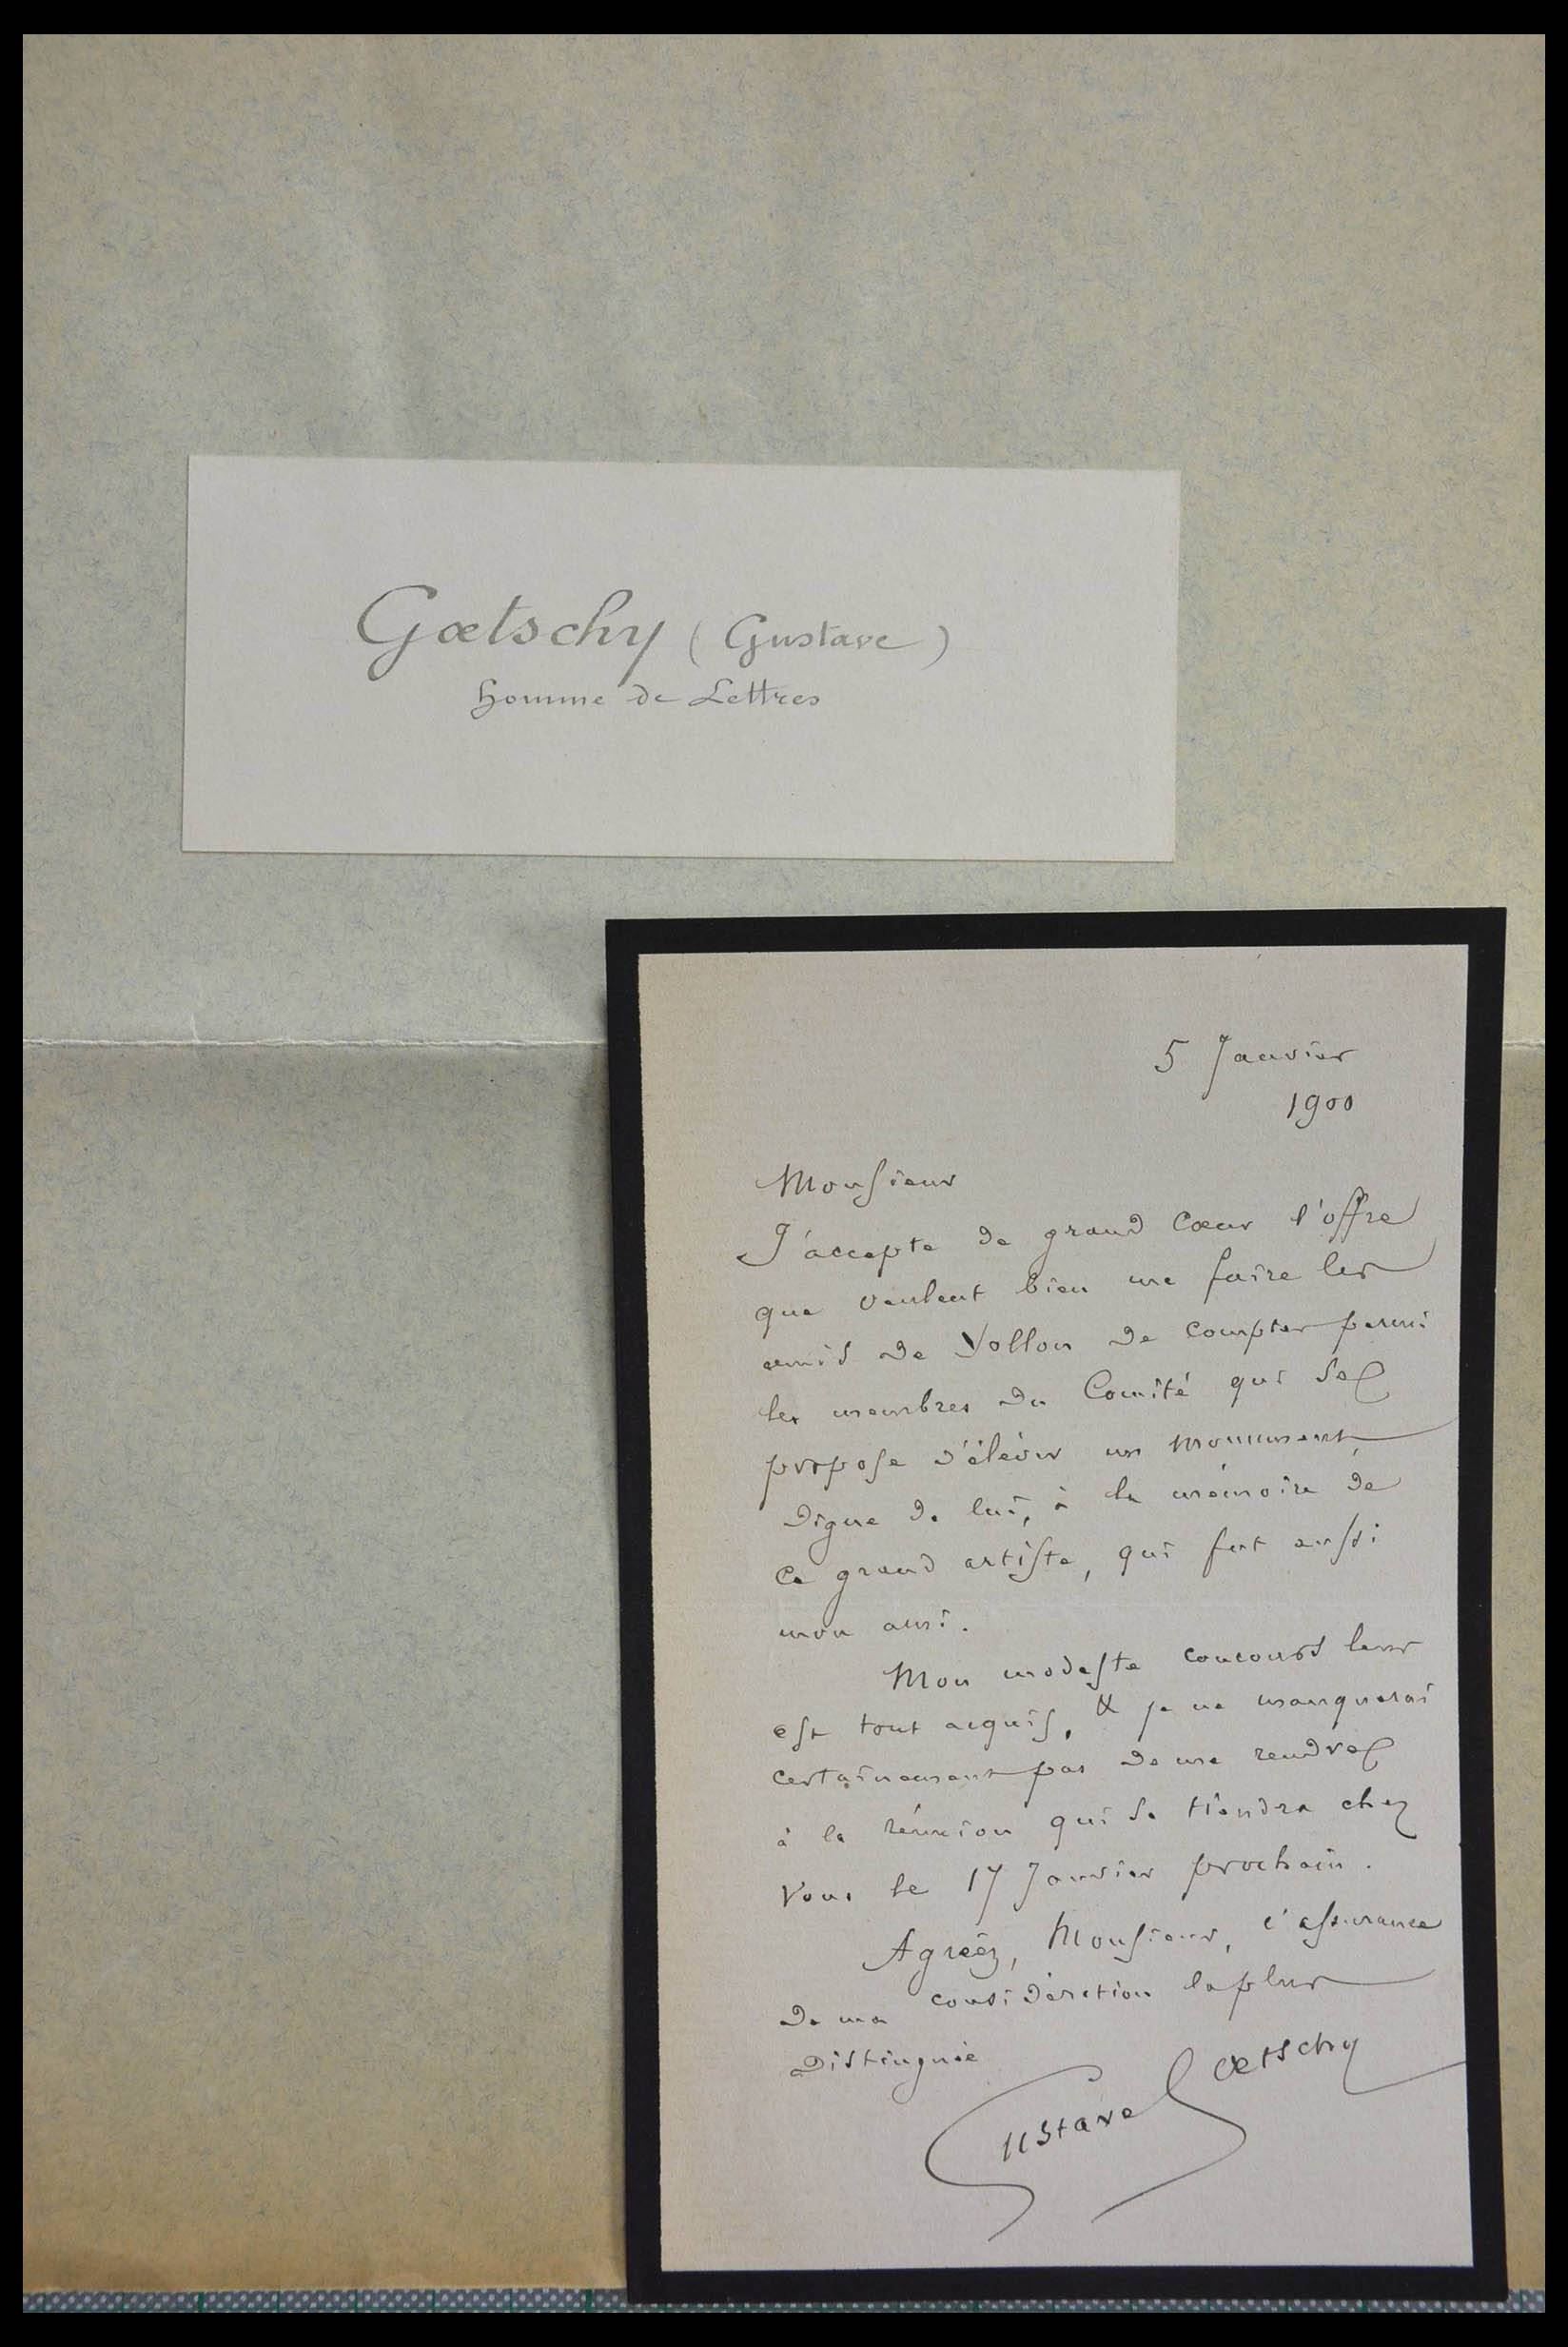 Gœtschy (Gustave)
Homme de Lettres
5 Janvier
1900
Monsieur
J'accepte de grand cœur l'offre
que veulent bien me faire les
amis de Vollon de compter parmi
les membres du Comité qui se
propose d'élever un monument,
digne de lui, à la mémoire de
ce grand artiste, qui fut aussi
mon ami.
Mon modeste concours leur
est tout acquis, & je ne manquerai
certainement pas de me rendre
à la réunion qui se tiendra chez
vous le 17 Janvier prochain.
Agréez, Monsieur, l'assurance
de ma considération la plus
distinguée
Gustave Gœtschy